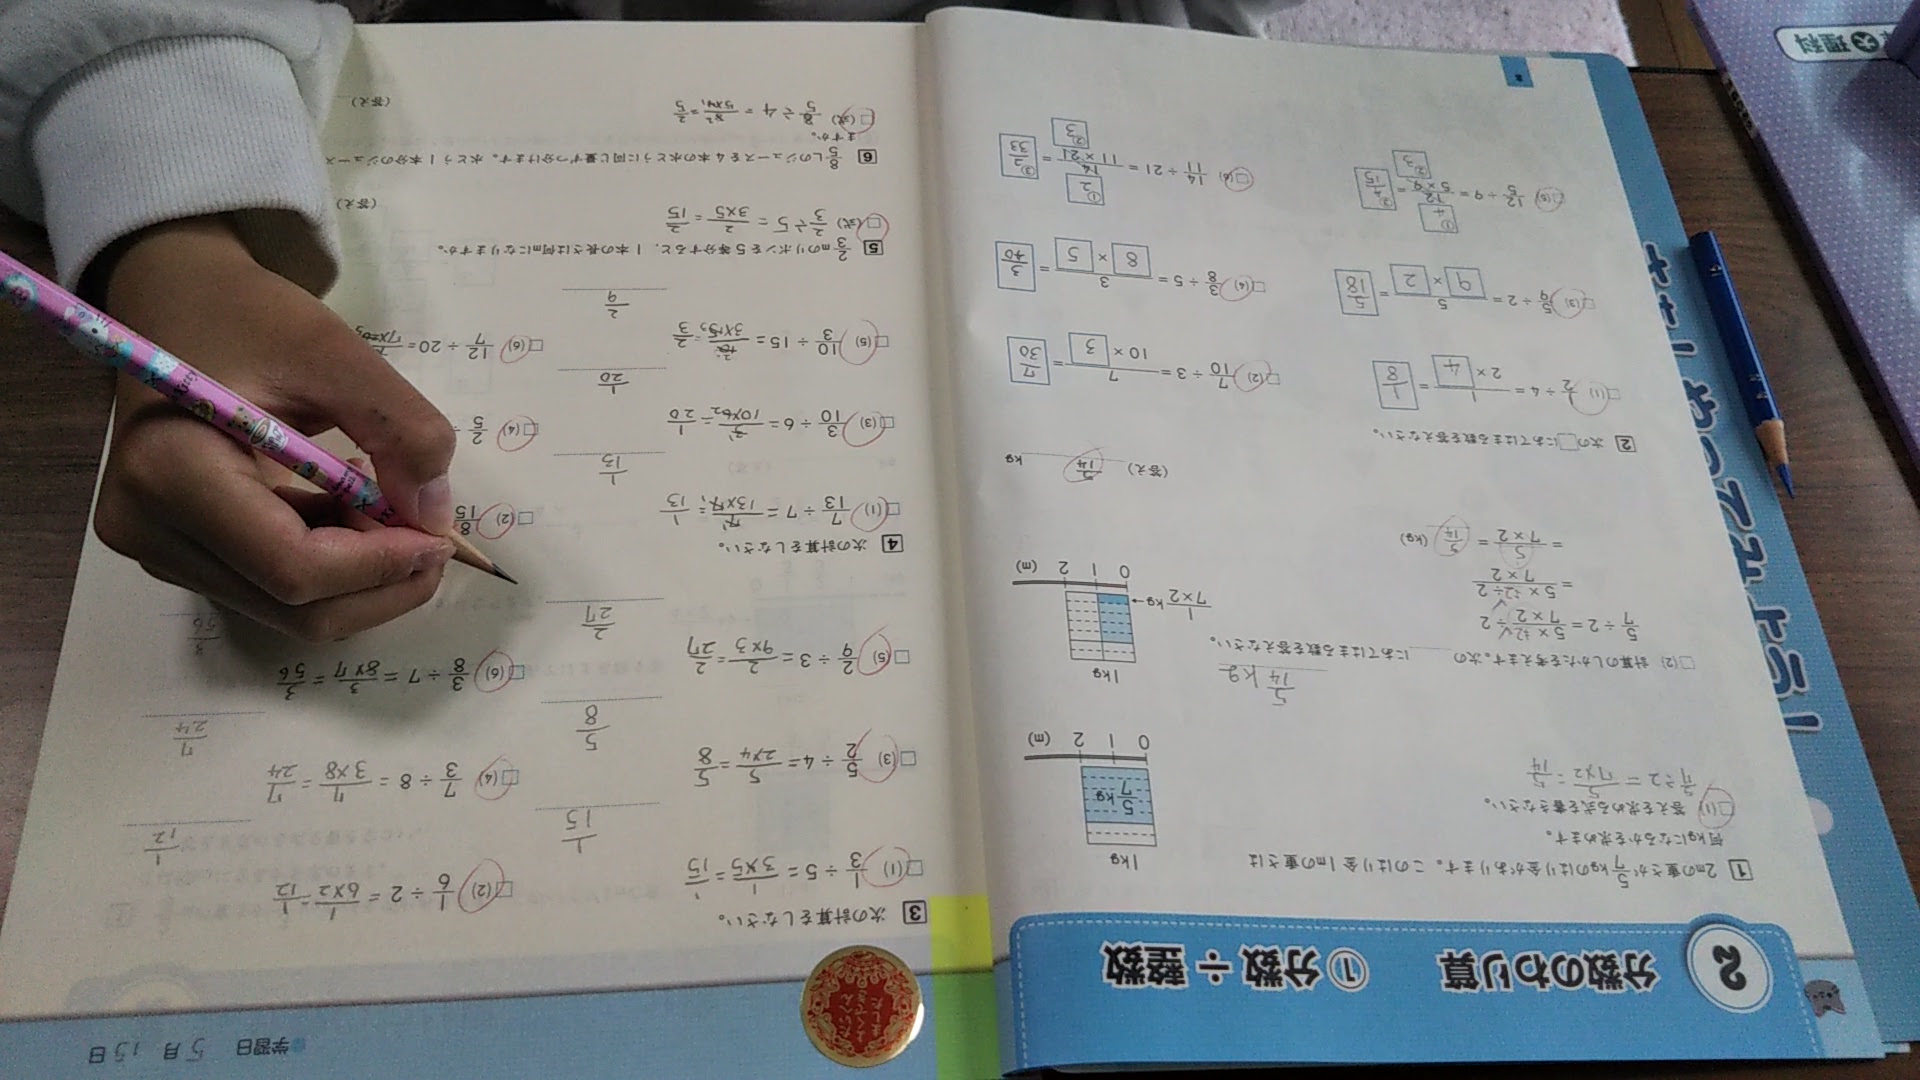 2 分数のわり算 ① 分数 ÷ 整数
1 2mの重さが5/7kgのはり金があります。このはり金1mの重さは
何kgになるかを求めます。
□(1) 答えを求める式を書きなさい。
5/7 ÷ 2 = 5/7×2 = 5/14
1kg
5/7 kg
0 1 2 (m)
5/14 kg
□(2) 計算のしかたを考えます。次の にあてはまる数を答えなさい。
5/7 ÷ 2 = 5×2/7×2 ÷ 2
= 5×2÷2/7×2
= 5/7×2 = 5/14 (kg)
1kg
1/7×2 kg
0 1 2 (m)
(答え) 5/14 kg
2 次の□にあてはまる数を答えなさい。
□(1) 1/2 ÷ 4 = 1/2×4 = 1/8
□(2) 7/10 ÷ 3 = 7/10×3 = 7/30
□(3) 5/9 ÷ 2 = 5/9×2 = 5/18
□(4) 3/8 ÷ 5 = 3/8×5 = 3/40
□(5) 12/5 ÷ 9 = 12/5×9 = 4/15
① 4
② 3
□(6) 14/11 ÷ 21 = 14/11×21 = 2/33
① 2
② 3
学習日 5月15日
3 次の計算をしなさい。
□(1) 1/3 ÷ 5 = 1/3×5 = 1/15
1/15
□(2) 1/6 ÷ 2 = 1/6×2 = 1/12
1/12
□(3) 5/2 ÷ 4 = 5/2×4 = 5/8
5/8
□(4) 7/3 ÷ 8 = 7/3×8 = 7/24
7/24
□(5) 2/9 ÷ 3 = 2/9×3 = 2/27
2/27
□(6) 3/8 ÷ 7 = 3/8×7 = 3/56
3/56
4 次の計算をしなさい。
□(1) 7/13 ÷ 7 = 7/13×7 = 1/13
1/13
□(2) 8/15
□(3) 3/10 ÷ 6 = 3/10×6 = 1/20
1/20
□(4) 2/5 ÷
□(5) 10/3 ÷ 15 = 10/3×15 = 2/3
2/9
□(6) 12/7 ÷ 20 =
5 2/3mのリボンを5等分すると、1本の長さは何mになりますか。
□(式) 2/3 ÷ 5 = 2/3×5 = 2/15
(答え)
6 8/5Lのジュースを4本の水とうに同じ量ずつ分けます。水とう1本分のジュース
ますか。
□(式) 8/5 ÷ 4 = 8/5×4 = 2/5
(答え)
やってみよう!
理科